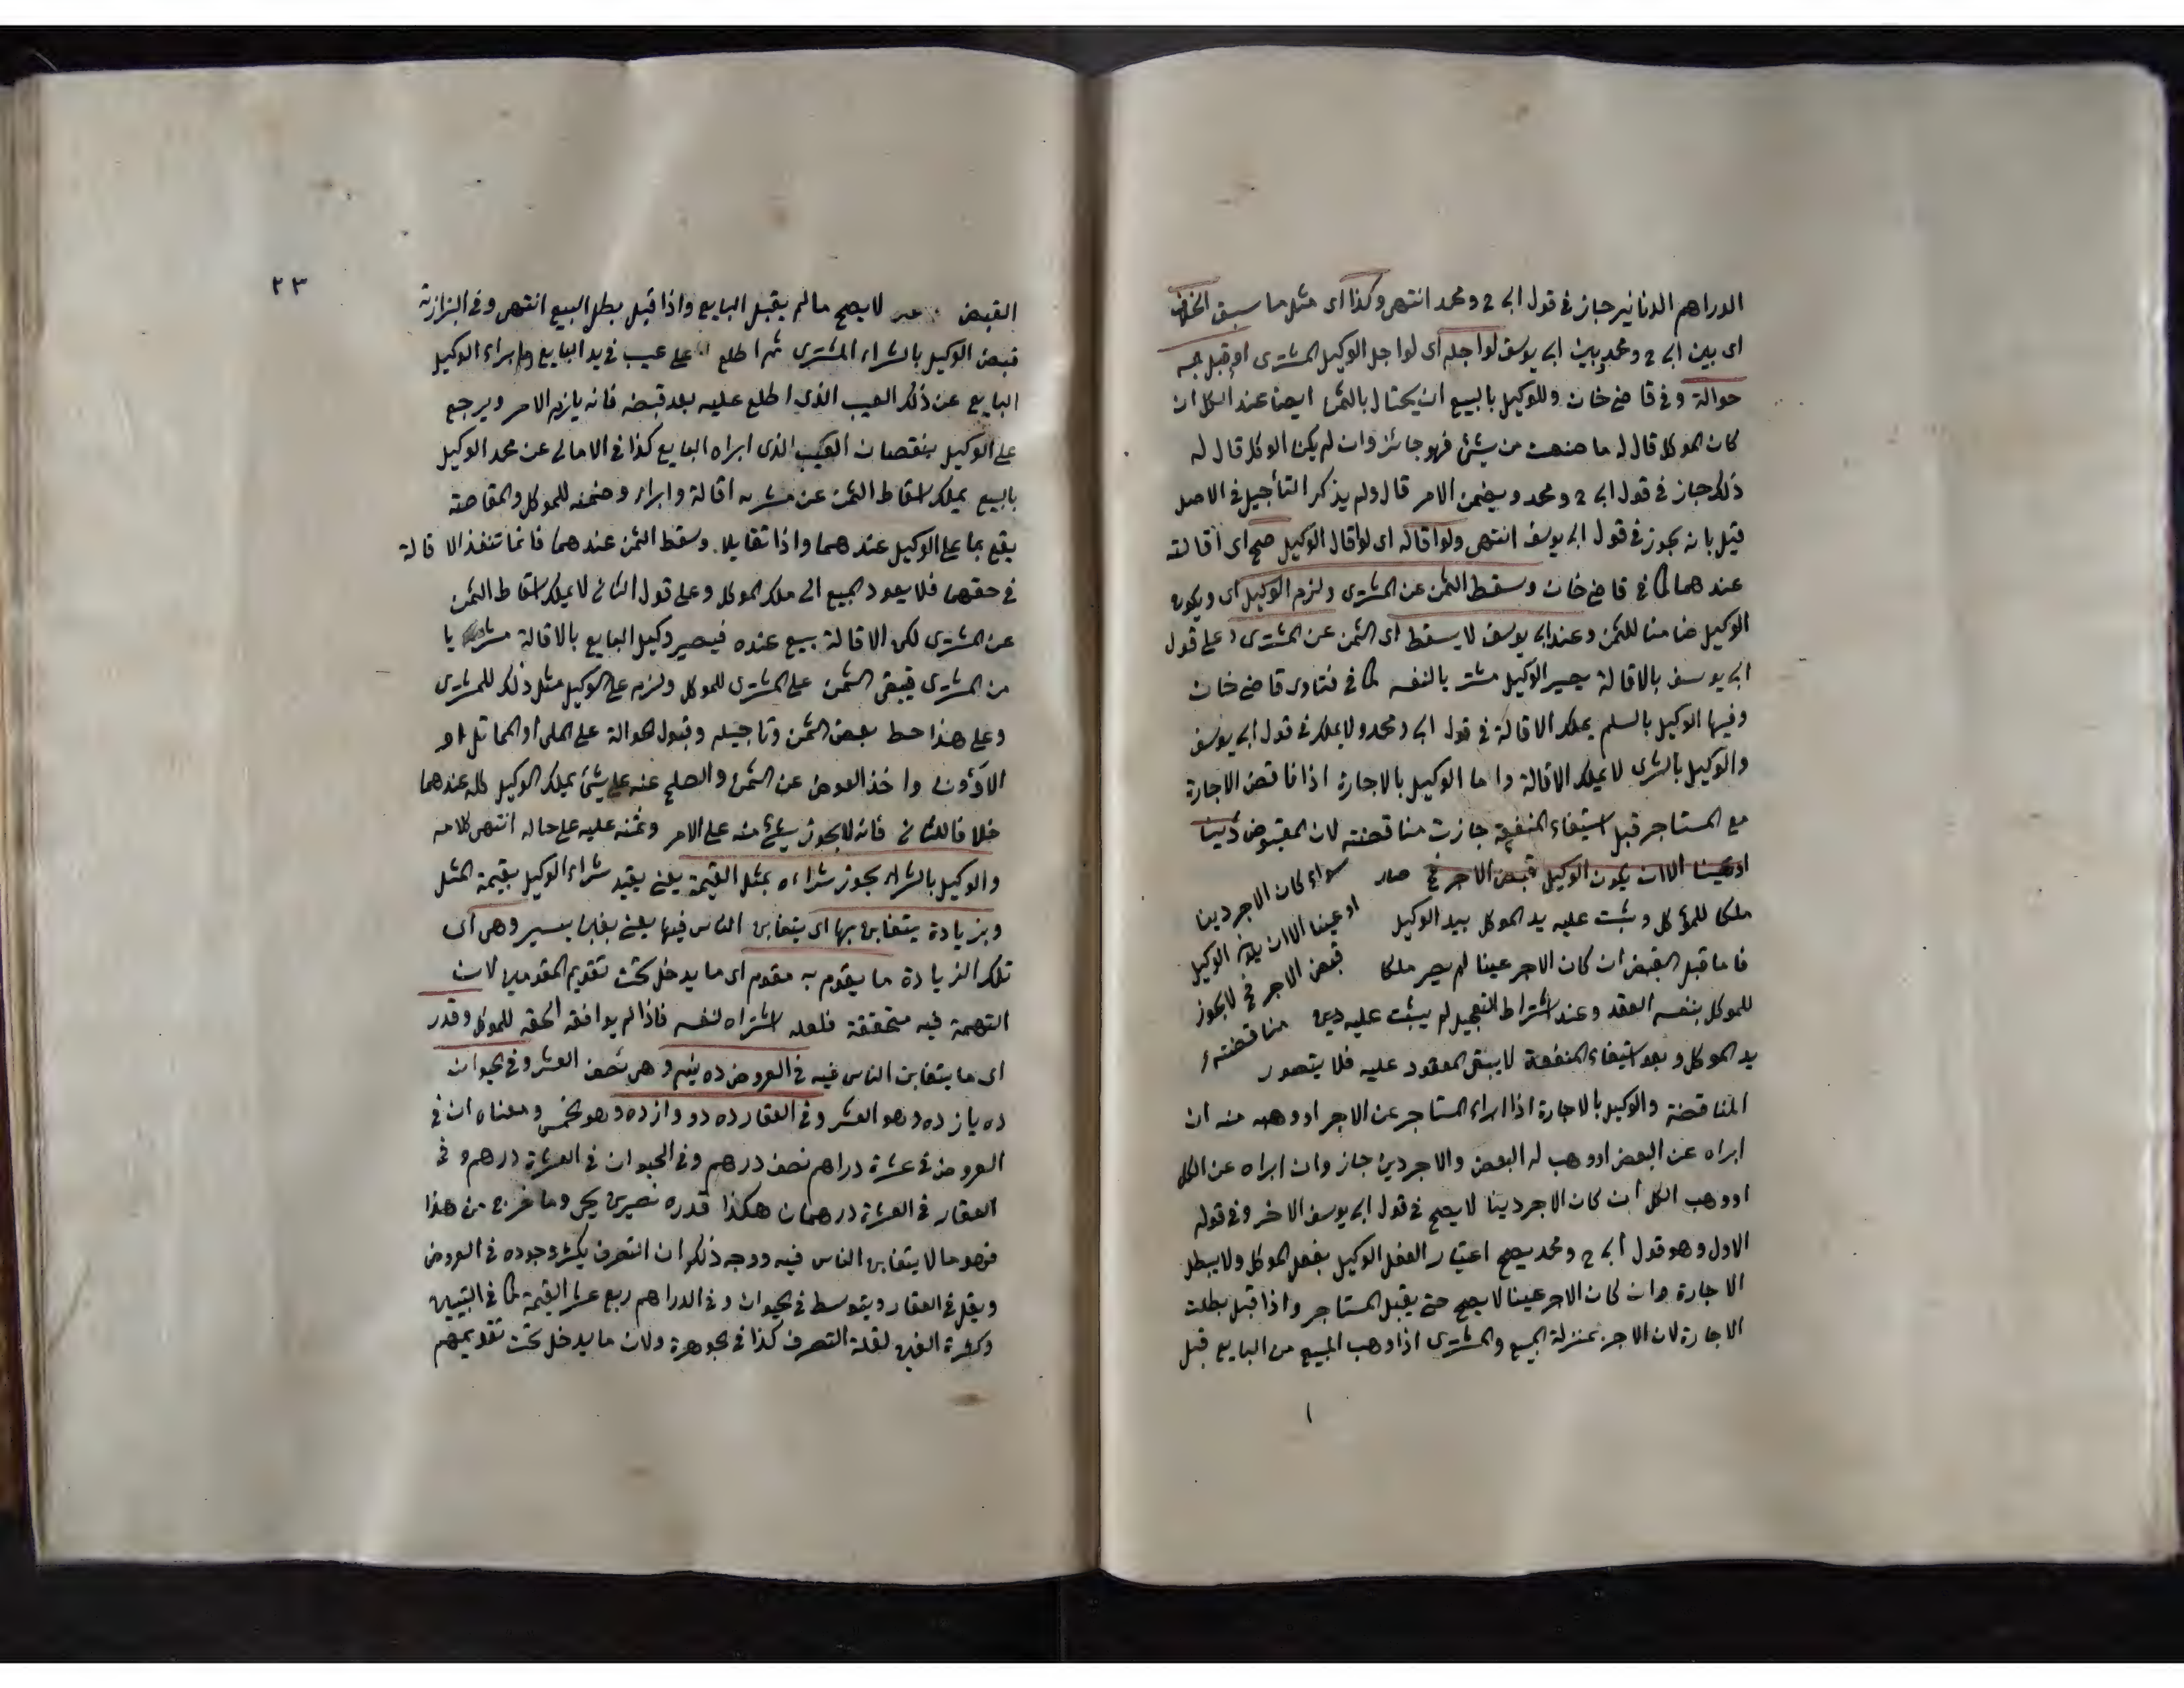 الدراهم الدنانير جاز فى قول ابى ح ومحمد انتهى وكذا اى مثل ما سبق الخلاف
اى بين ابى ح ومحمد وبين ابى يوسف لو اجله اى لو اجل الوكيل المشترى او قبل به
حوالة وفى قاضى خان وللوكيل بالبيع ان يحتال بالثمن ايضا عند الكل ان
كان الموكل قال له ما صنعت من شىء فهو جائز وان لم يكن الموكل قال له
ذلك جاز فى قول ابى ح ومحمد ويضمن الامر قال ولم يذكر التأجيل فى الاصل
قيل بانه يجوز فى قول ابى يوسف انتهى ولو اقاله اى لو اقال الوكيل صح اى اقالته
عندهما كما فى قاضى خان وسقط الثمن عن المشترى ولزم الوكيل اى ويكون
الوكيل ضامنا للثمن وعند ابى يوسف لا يسقط اى الثمن عن المشترى وعلى قول
ابى يوسف بالاقالة يصير الوكيل مشتريا لنفسه كما فى فتاوى قاضى خان
وفيها الوكيل بالسلم يملك الاقالة فى قول ابى ومحمد ولا يملك فى قول ابى يوسف
والوكيل بالشرى لا يملك الاقالة واما الوكيل بالاجارة اذا ناقض الاجارة
مع المستاجر قبل استيفاء المنفعة جازت مناقضته لان المقبوض دينا
او عينا الا ان يكون الوكيل قبض الاجر فح صار
سواء كان الاجر دينا
او عينا الا ان يكون الوكيل
قبض الاجر فح لا يجوز
مناقضته
ملكا للموكل وثبت عليه يد الموكل بيد الوكيل
فاما قبل القبض ان كان الاجر عينا لم يصر ملكا
للموكل بنفس العقد وعند اشتراط التعجيل لم يثبت عليه
يد الموكل وبعد استيفاء المنفعة لا يبقى المعقود عليه فلا يتصور
المناقضة والوكيل بالاجارة اذا ابراء المستاجر عن الاجر او وهبه منه ان
ابراه عن البعض او وهب له البعض والاجر دين جاز وان ابراه عن الكل
او وهب الكل ان كان الاجر دينا لا يصح فى قول ابى يوسف الاخر وفى قوله
الاول وهو قول ابى ح ومحمد يصح اعتبار الفعل الوكيل بفعل الموكل ولا يبطل
الاجارة وان كان الاجر عينا لا يصح حتى يقبل المستاجر واذا قبل بطلت
الاجارة لان الاجر بمنزلة المبيع والمشترى اذا وهب المبيع من البايع قبل
٢٣
القبض لا يصح ما لم يقبل البايع واذا قبل بطل البيع انتهى وفى البزازية
قبض الوكيل بالشراء المشترى ثم اطلع على عيب فى يد البايع وابراء الوكيل
البايع عن ذلك العيب الذى اطلع عليه بعد قبضه فانه يلزم الامر ويرجع
على الوكيل بنقصان العيب الذى ابراه البايع كذا فى الامالى عن محمد الوكيل
بالبيع يملك اسقاط الثمن عن مشتريه اقالة وابراء وضمنه للموكل والمقاصة
يقع بما على الوكيل عندهما واذا تقايلا وسقط الثمن عندهما فانما تنفذ الاقالة
فى حقهما فلا يعود المبيع الى ملك الموكل وعلى قول الثانى لا يملك اسقاط الثمن
عن المشترى لكن الاقالة بيع عنده فيصير وكيل البايع بالاقالة مشتريا
من المشترى فيبقى الثمن على المشترى للموكل ولزم على الوكيل مثل ذلك للمشترى
وعلى هذا حط بعض الثمن وتاجيله وقبول الحوالة على الملى او المماثل او
الادون واخذ العوض عن الثمن والصلح عنه على شىء يملك الوكيل كله عندهما
خلافا للثانى فانه لا يجوز شىء منه على الامر وثمنه عليه على حاله انتهى كلامه
والوكيل بالشراء يجوز شراءه بمثل القيمة يعنى يقيد شراء الوكيل بقيمة المثل
وبزيادة يتغابن بها اى يتغابن الناس فيها يعنى بغبن يسير وهى اى
تلك الزيادة ما يقوم به مقوم اى ما يدخل تحت تقويم المقومين لان
التهمة فيه متحققة فلعله اشتراه لنفسه فاذا لم يوافقه الحقه للموكل وقدر
اى ما يتغابن الناس فيه فى العروض ده نيم وهى نصف العشر وفى الحيوان
ده يازده وهو العشر وفى العقار ده دوازده وهو الخمس ومعناه ان فى
العروض فى عشرة دراهم نصف درهم وفى الحيوان فى العشرة درهم وفى
العقار فى العشرة درهمان هكذا قدره نصير بن يحيى وما خرج من هذا
فهو مما لا يتغابن الناس فيه ووجه ذلك ان التصرف يكثر وجوده فى العروض
ويقل فى العقار ويتوسط فى الحيوان وفى الدراهم ربع عشر القيمة كما فى التبيين
وكثرة الغبن لقلة التصرف كذا فى الجوهرة ولان ما يدخل تحت تقويمهم